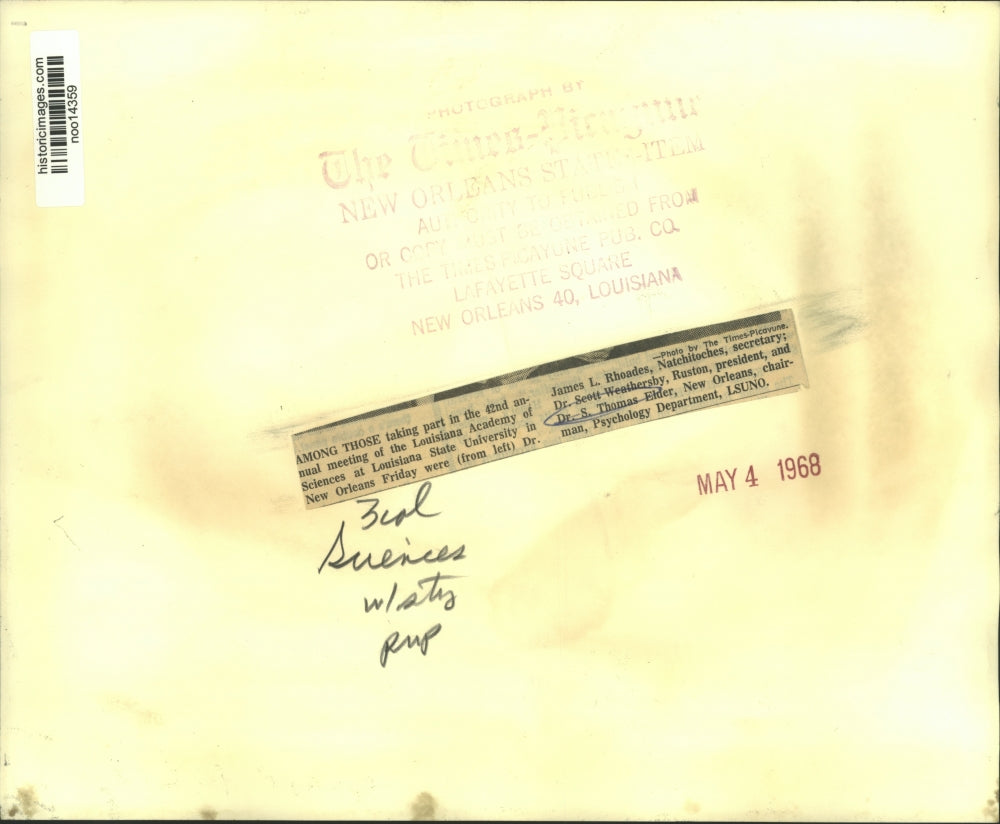 historicimages.com
noo14359
PHOTOGRAPH BY
The Times-Picayune
NEW ORLEANS STATES-ITEM
AUTHORITY TO
OR COPY MUST BE OBTAINED FROM
THE TIMES PICAYUNE PUB. CO.
LAFAYETTE SQUARE
NEW ORLEANS 40, LOUISIANA
AMONG THOSE taking part in the 42nd an-
nual meeting of the Louisiana Academy of
Sciences at Louisiana State University in
New Orleans Friday were (from left) Dr.
—Photo by The Times-Picayune.
James L. Rhoades, Natchitoches, secretary;
Dr. Scott Weathersby, Ruston, president, and
Dr. S. Thomas Elder, New Orleans, chair-
man, Psychology Department, LSUNO.
MAY 4 1968
3col
Sciences
w/sty